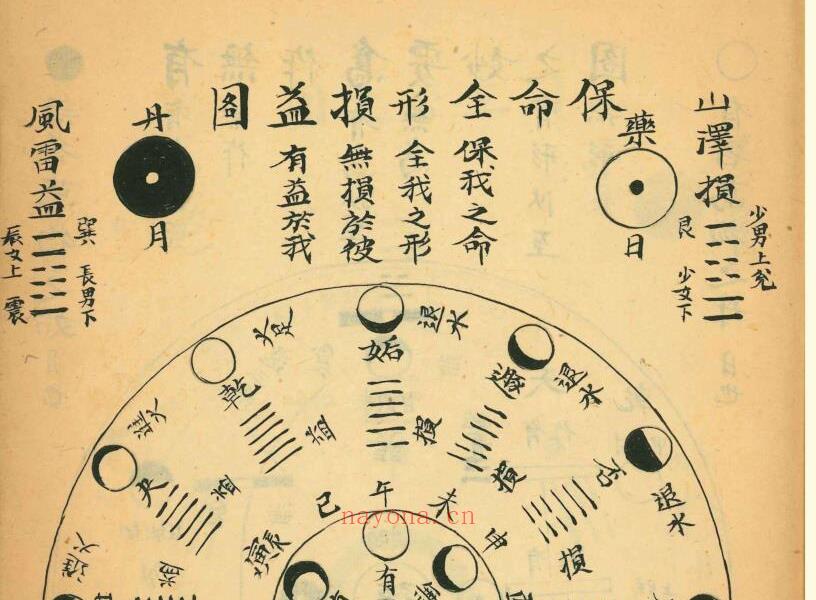 保命全形損益圖
保我之命
全我之形
無損於彼
有益於我
山澤損
少男上兌
艮 少女下
藥
日
丹
月
風雷益
巽 長男下
長女上 震
姤
退水
損
遯
退水
損
否
退水
損
乾
火足
益
夬
進火
益
進火
益
巳
午
未
申
庚辰
有
nayona.cn